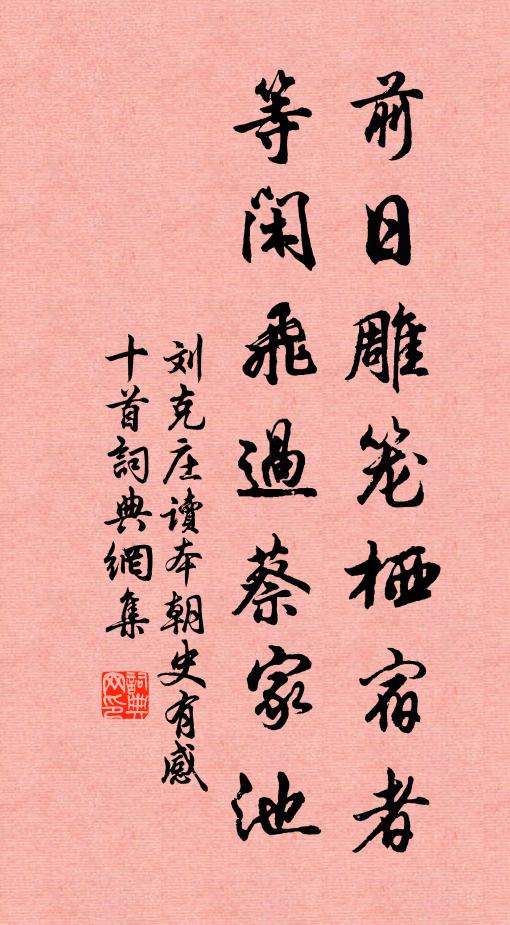 前日雕笼栖宿者
等闲飛過蔡家池
刘克庄讀本朝史有感
十首詞典網集
詞典
网印